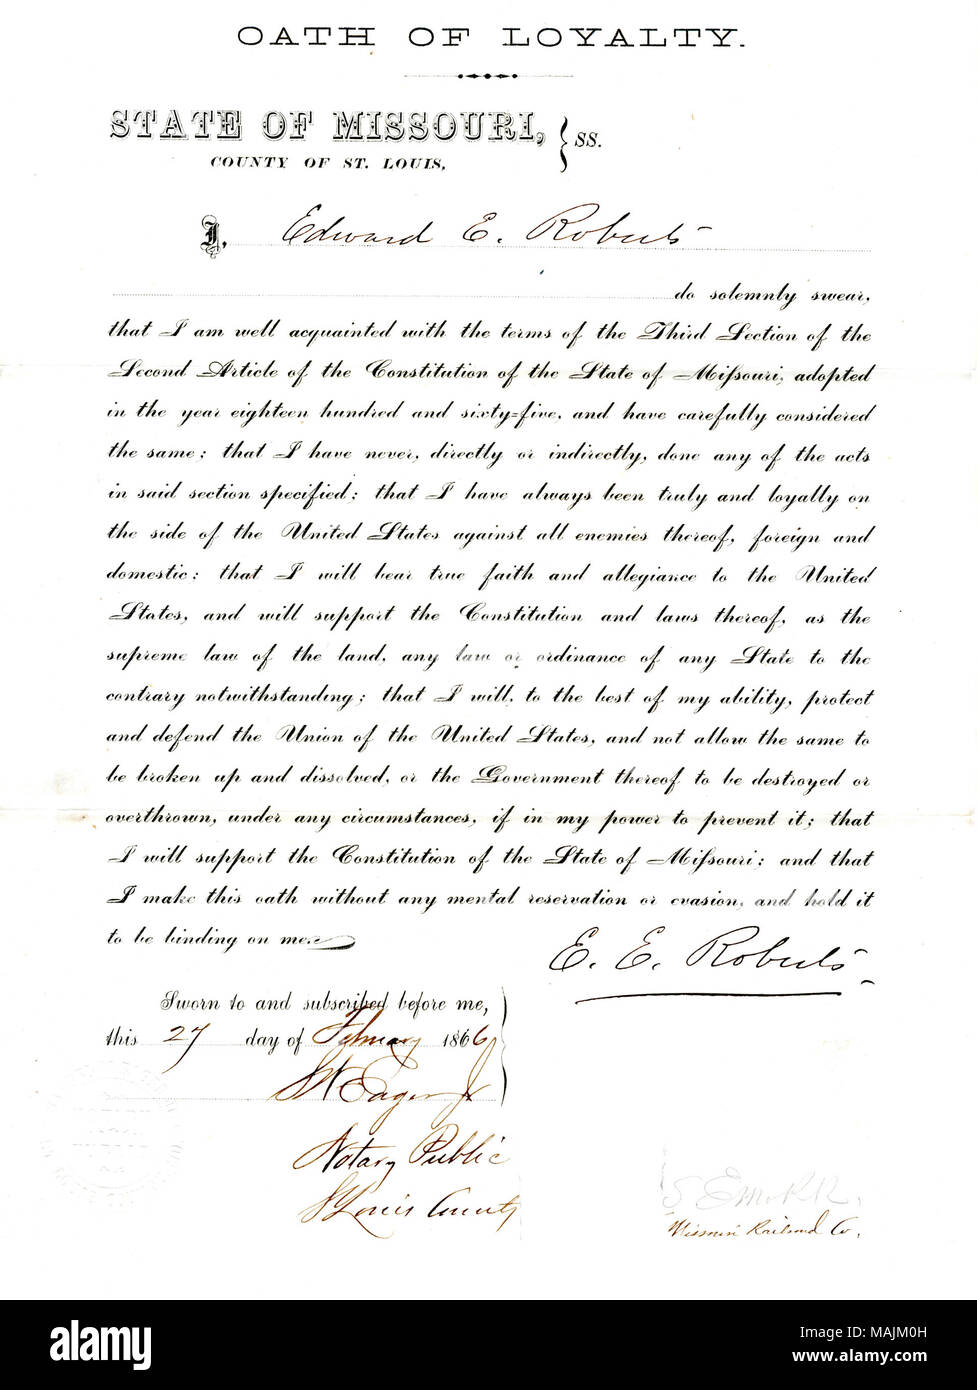 OATH OF LOYALTY.
STATE OF MISSOURI, } SS.
COUNTY OF ST. LOUIS,
I, Edward E. Roberts
do solemnly swear,
that I am well acquainted with the terms of the Third Section of the
Second Article of the Constitution of the State of Missouri, adopted
in the year eighteen hundred and sixty-five, and have carefully considered
the same; that I have never, directly or indirectly, done any of the acts
in said section specified; that I have always been truly and loyally on
the side of the United States against all enemies thereof, foreign and
domestic; that I will bear true faith and allegiance to the United
States, and will support the Constitution and laws thereof, as the
supreme law of the land, any law or ordinance of any State to the
contrary notwithstanding; that I will, to the best of my ability, protect
and defend the Union of the United States, and not allow the same to
be broken up and dissolved, or the Government thereof to be destroyed or
overthrown, under any circumstances, if in my power to prevent it; that
I will support the Constitution of the State of Missouri; and that
I make this oath without any mental reservation or evasion, and hold it
to be binding on me.
E. E. Roberts
Sworn to and subscribed before me,
this 27 day of February 1866
Eager Jr
Notary Public
St Louis County
Missouri Railroad Co.
alamy
Image ID: MAJM0H
www.alamy.com